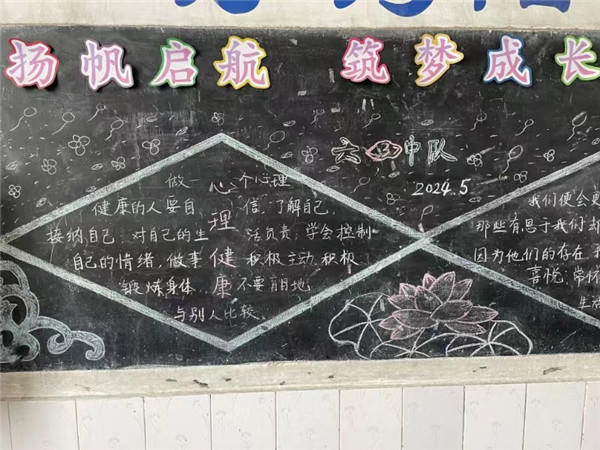 扬帆启航 筑梦成长
六 中队
2024.5
心理健康
做一个心理
健康的人要自信,了解自己,
接纳自己,对自己的生活负责,学会控制
自己的情绪,做事积极主动,积极
锻炼身体,不要盲目地
与别人比较.
我们便会更
那些有恩于我们却
因为他们的存在,
喜悦;常怀
生活